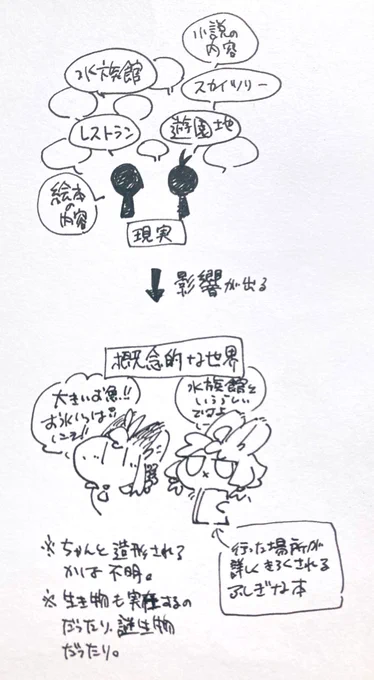 小説の
内容
水族館
スカイツリー
レストラン
遊園地
絵本の
内容
現実
影響が出る
概念的な世界
大きいお魚!!
水族館と
いうらしい
ですよ
行った場所が
詳しくきろくされる
ふしぎな本
※ちゃんと造形される
かは不明。
※生き物も実在するの
だったり、謎生物
だったり。